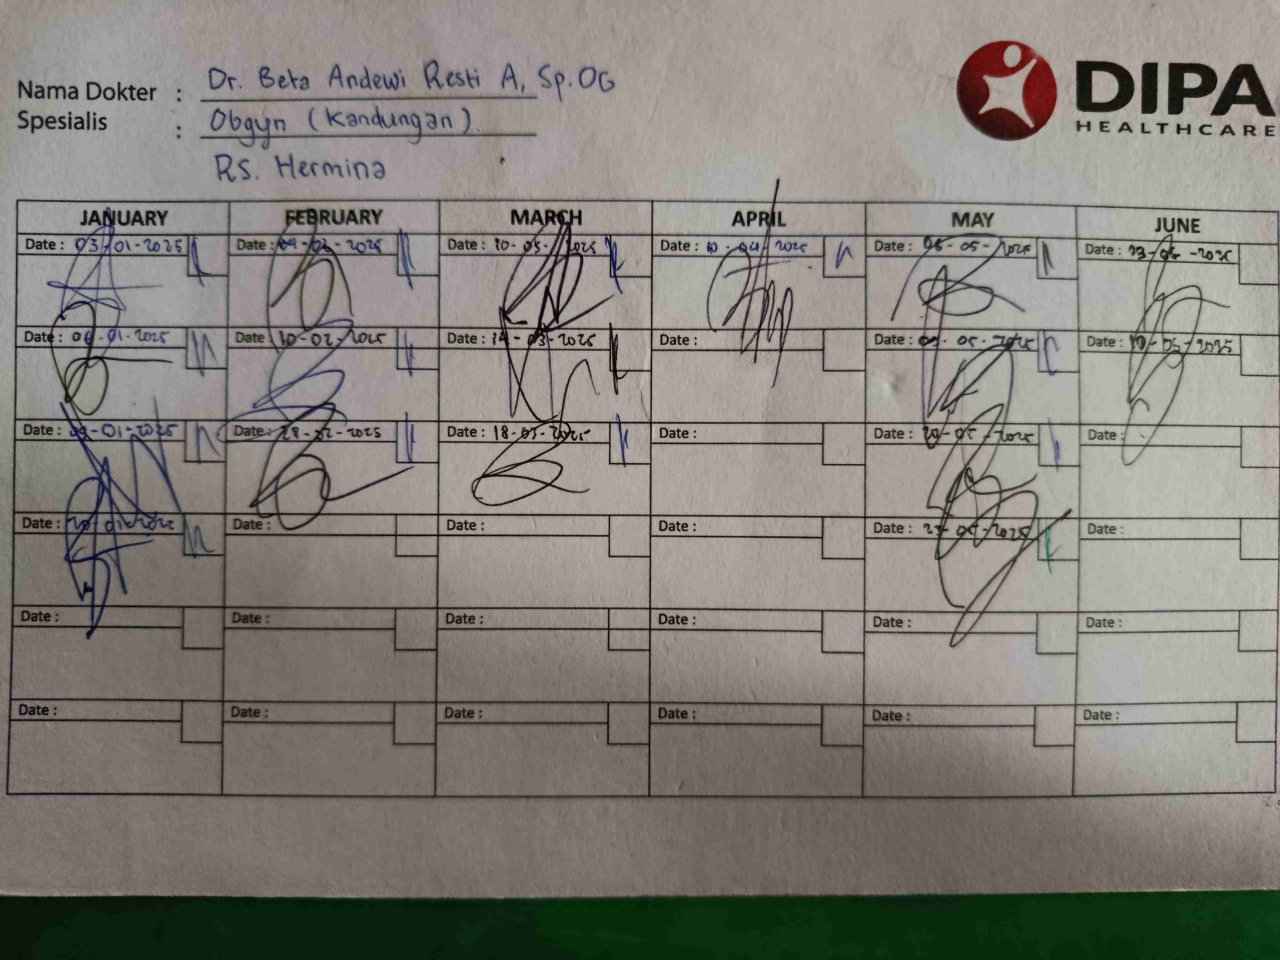 Nama Dokter : Dr. Beta Andewi Resti A, Sp.OG
Spesialis : Obgyn (Kandungan)
RS. Hermina
DIPA
HEALTHCARE
JANUARY FEBRUARY MARCH APRIL MAY JUNE
Date : 03-01-2025 Date : Date : 10-03-2025 Date : 10-04-2025 Date : 05-2025 Date : 03-06-2025
Date : 06-01-2025 Date : 10-02-2025 Date : 14-03-2025 Date : Date : 05-2025 Date : 2025
Date : 09-01-2025 Date : 28-02-2025 Date : 18-03-2025 Date : Date : 20-05-2025 Date :
Date : Date : Date : Date : Date : 05-2025 Date :
Date : Date : Date : Date : Date : Date :
Date : Date : Date : Date : Date : Date :